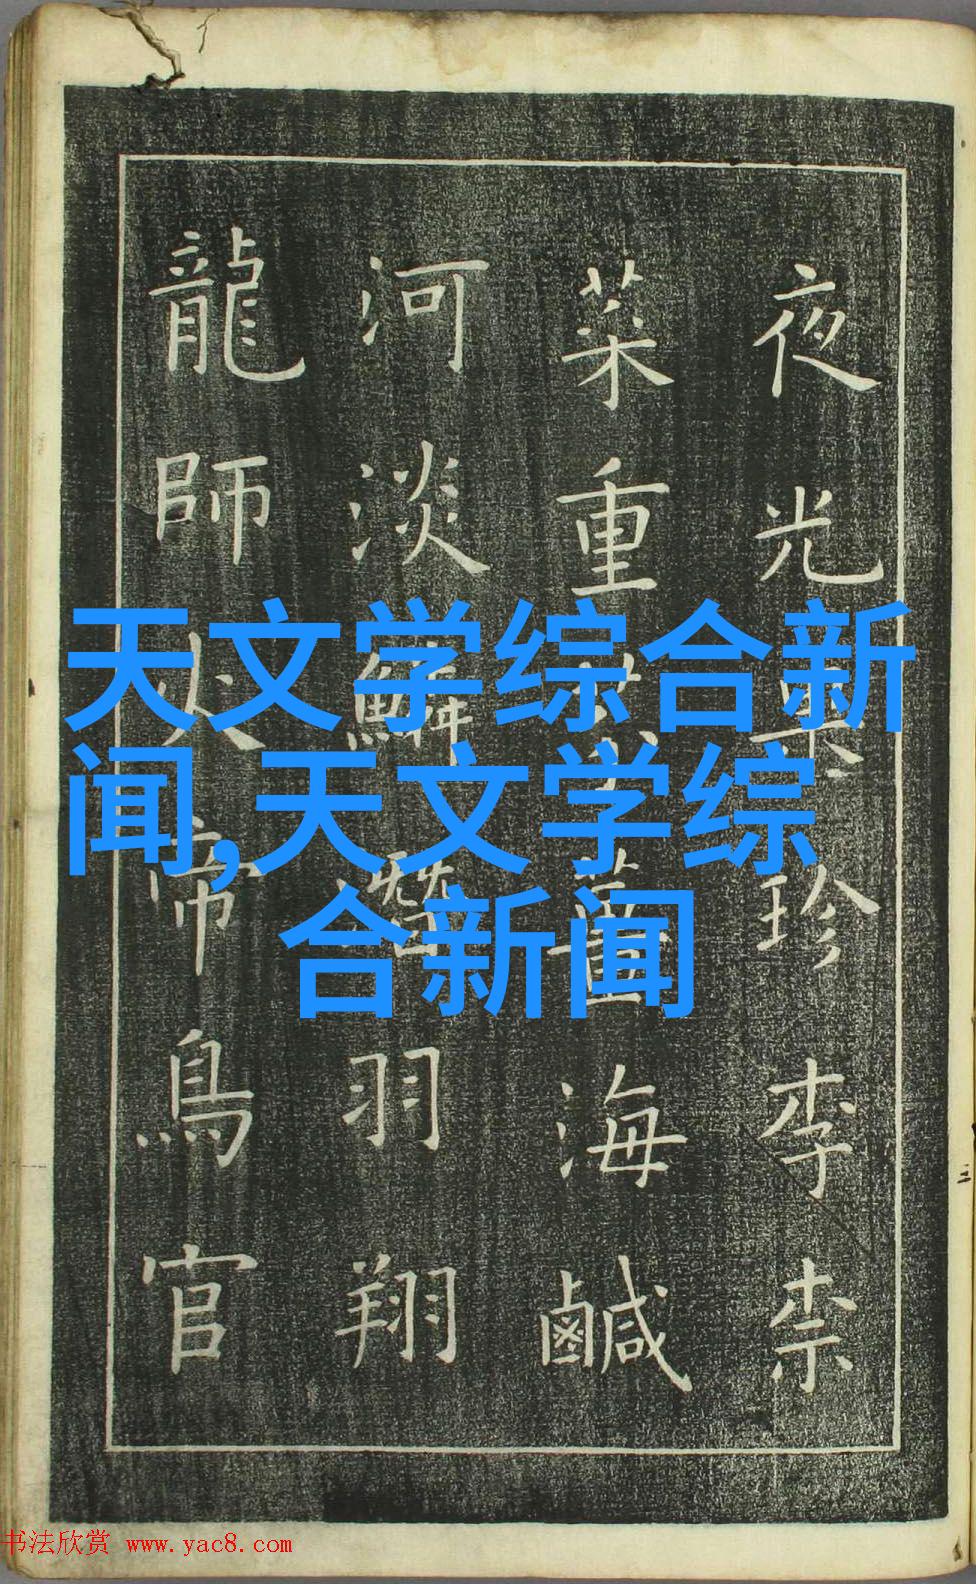 夜光珍李柰
菜重薑海鹹
河淡鱗潛羽翔
龍師火帝鳥官
天文学综合新
闻,天文学综
合新闻
书法欣赏 www.yac8.com